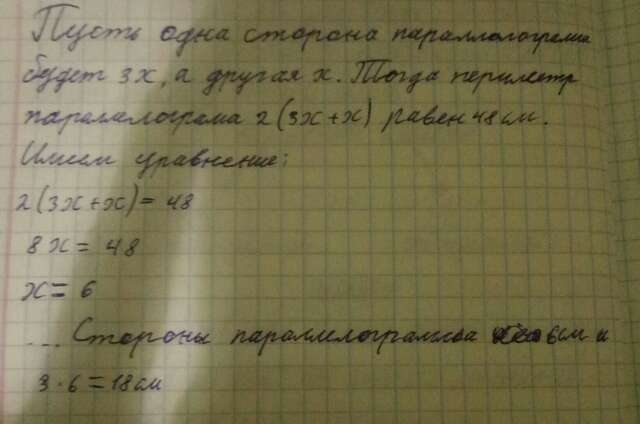 Пусть одна сторона параллелограмма
будет 3х, а другая х. Тогда периметр
параллелограма 2(3х+х) равен 48 см.
Имеем уравнение:
2(3х+х)= 48
8х = 48
х = 6
... Стороны параллелограмма 6см и
3·6=18см